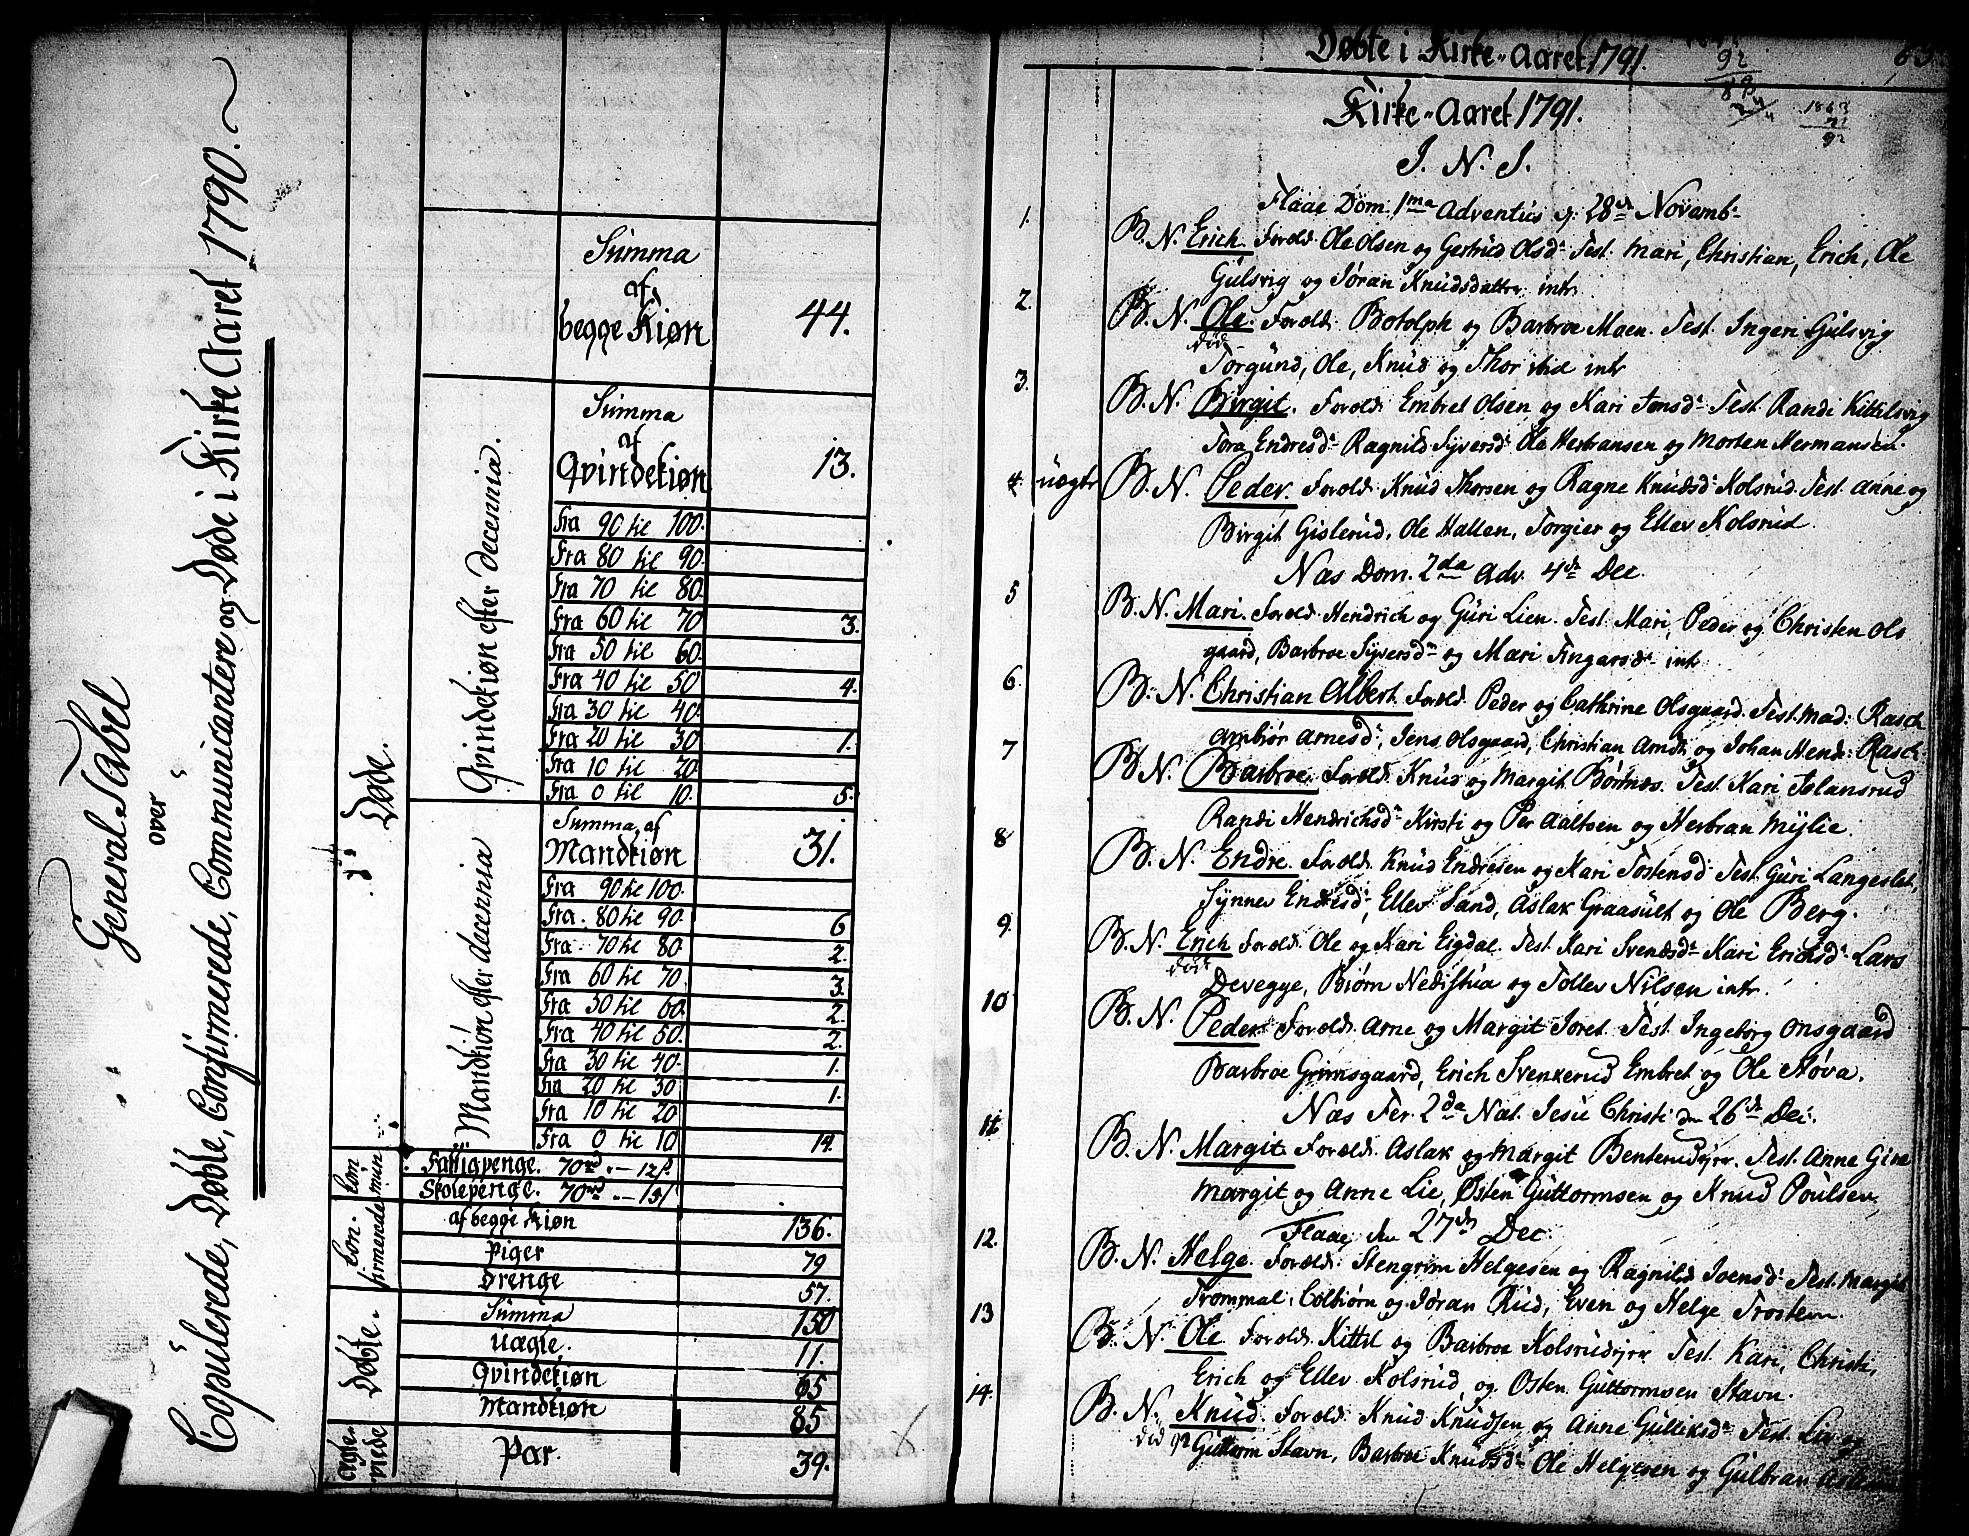 General-Tabel
over
Copulerede, Døbte, Confirmerede, Communicantere og Døde i Kirke Aaret 1790.
Døde.
Summa
af
begge Kiøn 44.
Qvindekiøn efter Decennia.
Summa
af
Qvindekiøn 13.
Fra 90 til 100.
Fra 80 til 90.
Fra 70 til 80.
Fra 60 til 70 3.
Fra 50 til 60.
Fra 40 til 50 4.
Fra 30 til 40.
Fra 20 til 30 1.
Fra 10 til 20
Fra 0 til 10. 5.
Mandkiøn efter decennia
Summa af
Mandkiøn 31.
Fra 90 til 100.
Fra 80 til 90. 6
Fra 70 til 80 2.
Fra 60 til 70. 3.
Fra 50 til 60. 2.
Fra 40 til 50. 2.
Fra 30 til 40. 1.
Fra 20 til 30 1.
Fra 10 til 20
Fra 0 til 10 14.
Fattigpenge. 70
Skolepenge. 70
Con-
firmerede
af begge Kiøn 136.
Piger 79
Drenge 57.
Døbte.
Summa 150
Uægte. 11.
Qvindekiøn 65
Mandkiøn 85
Par. 39.
Døbte i Kirke-Aaret 1791.
92
1863
92
Kirke-Aaret 1791.
I. N. I.
Flaae Dom. 1ma Adventus 28de Novemb-
1. B. N. Erich. Forold. Ole Olsen og Gertrud Olsd. Test. Mari, Christian, Erich, Ole
Gulsvig og Jøran Knudsdatter intr
2. B. N. Ole. Forold. Botolph og Barbroe Moen. Test. Ingeri Gulsvig
død
Torgund, Ole, Knud og Thor ibid intr
3. B. N. Birgit. Forold. Embret Olsen og Kari Jonsd. Test. Randi Kittilsvig
Tora Endresd. Ragnild Syversd. Ole Herbransen og Morten Hermansen.
4. uægte B. N. Peder. Forold. Knud Thorsen og Ragne Knudsd. Kolsrud. Test. Anne og
Birgit Gislerud, Ole Hallen, Torgier og Ellev Kolsrud.
Næs Dom. 2da Adv. 4de Dec.
5 B. N. Mari. Forold. Hendrich og Guri Lien. Test. Mari, Peder og Christen Ols
gaard, Barbroe Syversd. og Mari Fingarsd. intr
6. B. N. Christian Albert. Forold. Peder og Cathrine Olsgaard. Test. Mad: Rasch
Ambiør Arnesd., Jens Olsgaard, Christian Arndt og Johan Hend: Rasch
7 B. N. Barbroe. Forold. Knud og Margit Børtnæs. Test. Kari Jolansrud
Randi Hendrichsd. Kirsti og Per Aaltsen og Herbran Mylie.
8 B. N. Endre. Forold. Knud Endresen og Kari Tostensd. Test. Guri Langeslet,
Synnev Endresd., Ellev Sand, Aslak Graasult og Ole Berg.
9. B. N. Erich Forold. Ole og Kari Eigdal. Test. Kari Svendsd. Kari Erichsd. Lars
død
Devegge, Biørn Nedistua og Tollev Nilsen intr.
10 B. N. Peder. Forold. Arne og Margit Joret. Test. Ingeborg Onsgaard
Barbroe Grimsgaard, Erich Svenkerud Embret og Ole Støva.
Næs Fer. 2da Nat. Jesu Christi den 26de Dec.
11 B. N. Margit Forold. Aslak og Margit Benterudeyer. Test. Anne
Margit og Anne Lie, Østen Guttormsen og Knud Poulsen,
Flaae den 27de Dec.
12. B. N. Helge. Forold. Stengrim Helgesen og Ragnild Ivensd. Test. Margit
Trommal, Colbiørn og Jøran Rud, Even og Helge Trostem.
13 B. N. Ole Forold. Kittel og Barbroe Kolsrudeyer Test. Kari, Christi,
Erich og Ellev Kolsrud, og Østen Guttormsen Stavn.
14. B. N. Knud. Forold. Knud Knudsen og Anne Gulliksd. Test. Liv og
død 92 Guttorm Stavn, Barbroe Knudsd. Ole Helgesen og Gulbran